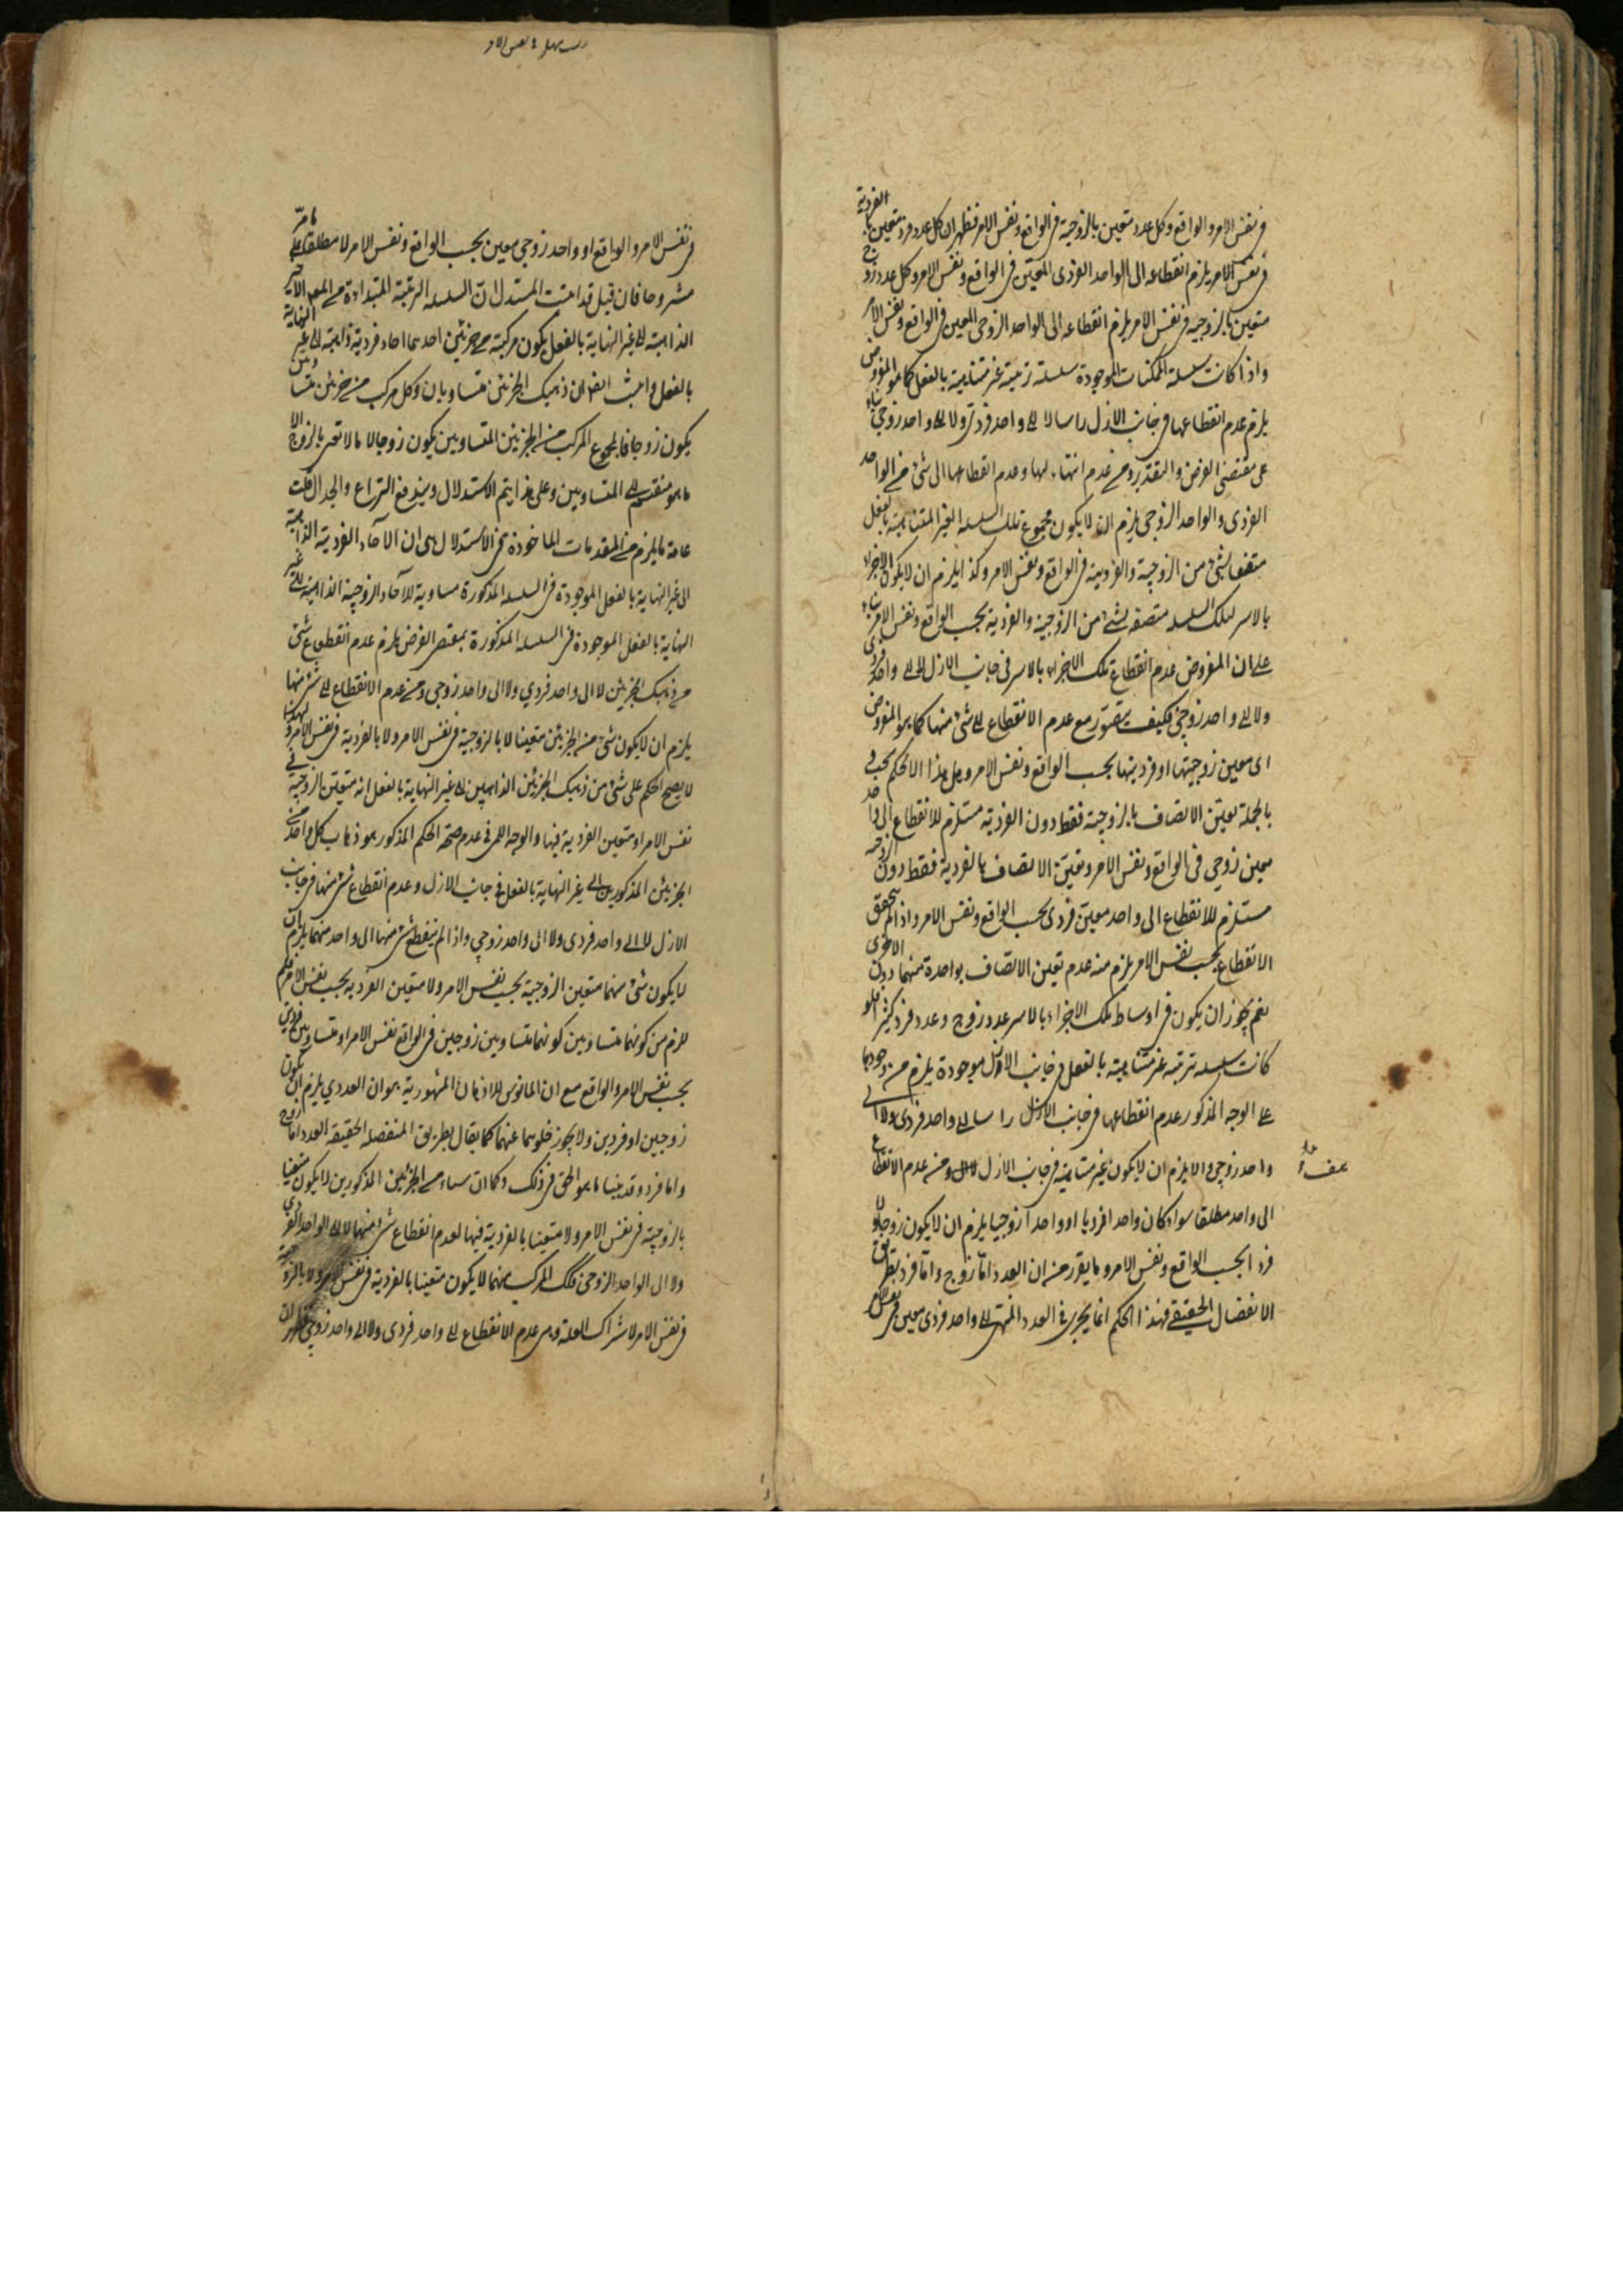 في نفس الامر والواقع وكل عدد متعين بالزوجية في الواقع ونفس الامر فظهر ان كل عدد فرد متعين بالفردية
في نفس الامر يلزم انقطاعه الى الواحد الفردى المعين في الواقع ونفس الامر وكل عدد زوج
متعين بالزوجية في نفس الامر يلزم انقطاعه الى الواحد الزوجى المعين في الواقع ونفس الامر
واذا كانت سلسلة الممكنات الموجودة سلسلة ترتيبية غير متناهية بالفعل كما هو المفروض
يلزم عدم انقطاعها في جانب الازل راسا لا الى واحد فردى ولا الى واحد زوجى بناء
على مقتضى الفرض والتقدير ومن عدم انتهائها وعدم انقطاعها الى شئ من الواحد
الفردى والواحد الزوجى يلزم ان لا يكون مجموع تلك السلسلة الغير المتناهية بالفعل
متصفا بشئ من الزوجية والفردية في الواقع ونفس الامر وكذا يلزم ان لا يكون الاجزاء
بالاسر لتلك السلسلة متصفة بشئ من الزوجية والفردية بحسب الواقع ونفس الامر بناء
على ان المفروض عدم انقطاع تلك الاجزاء بالاسر في جانب الازل لا الى واحد فردى
ولا الى واحد زوجى فكيف يتصور مع عدم الانقطاع الى شئ منها كما هو المفروض
اى معين زوجيتها او فرديتها بحسب الواقع ونفس الامر وهل هذا الا تحكم بحت
بالجملة تعين الاتصاف بالزوجية فقط دون الفردية مستلزم للانقطاع الى واحد
معين زوجى في الواقع ونفس الامر وتعين الاتصاف بالفردية فقط دون الزوجية
مستلزم للانقطاع الى واحد معين فردى بحسب الواقع ونفس الامر واذا لم يتحقق
الانقطاع بحسب نفس الامر يلزم منه عدم تعين الاتصاف بواحدة منهما دون الاخرى
نعم يجوز ان يكون في اوساط تلك الاجزاء بالاسر عدد زوج وعدد فرد كثيرا فلو
كانت سلسلة مترتبة غير متناهية بالفعل في جانب الازل موجودة يلزم من وجودها
على الوجه المذكور عدم انقطاعها في جانب الازل راسا لا الى واحد فردى ولا الى
واحد زوجى والا يلزم ان لا يكون غير متناهية في جانب الازل ومن عدم الانقطاع
الى واحد مطلقا سواء كان واحدا فرديا او واحدا زوجيا يلزم ان لا يكون زوجا ولا
فردا بحسب الواقع ونفس الامر وما يقرر من ان العدد اما زوج واما فرد بطريق
الانفصال الحقيقى فهذا الحكم انما يجرى في العدد المنتهى الى واحد فردى معين في نفس الامر
في نفس الامر والواقع او واحد زوجى معين بحسب الواقع ونفس الامر لا مطلقا على ما مر
مشروحا فان قيل قد اثبت المستدل ان السلسلة الترتيبية المبتداءة من المعلول الاخير
الذاهبة الى غير النهاية بالفعل يكون مركبة من جزئين احدهما احاد فردية ذاهبة الى غير النهاية
بالفعل واثبت ايضا ان ذينك الجزئين متساويان وكل مركب من جزئين متساويين
يكون زوجا فالمجموع المركب من الجزئين المتساويين يكون زوجا لا محالة لا نعنى بالزوج الا
ما هو منقسم الى المتساويين وعلى هذا يتم الاستدلال ويندفع النزاع والجدال قلت
غاية ما يلزم من المقدمات الماخوذة في الاستدلال هى ان الاحاد الفردية الذاهبة
الى غير النهاية بالفعل الموجودة في السلسلة المذكورة مساوية للآحاد الزوجية الذاهبة الى غير
النهاية بالفعل الموجودة في السلسلة المذكورة بمقتضى الفرض يلزم عدم انقطاع شئ
من ذينك الجزئين لا الى واحد فردي ولا الى واحد زوجى ومن عدم الانقطاع الى شئ منها
يلزم ان لا يكون شئ من الجزئين متعينا لا بالزوجية في نفس الامر ولا بالفردية في نفس الامر ولهذا
لا يصح الحكم على شئ من ذينك الجزئين الذاهبين الى غير النهاية بالفعل انه متعين الزوجية في
نفس الامر او متعين الفردية فيها والوجه اللمى في عدم صحة الحكم المذكور هو ذهاب كل واحد من
الجزئين المذكورين الى غير النهاية بالفعل في جانب الازل وعدم انقطاع شئ منها في جانب
الازل لا الى واحد فردى ولا الى واحد زوجي واذا لم ينقطع شئ منها الى واحد منهما يلزم ان
لا يكون شئ منهما متعين الزوجية بحسب نفس الامر ولا متعين الفردية بحسب نفس الامر فلم
يلزم من كونهما متساويين كونهما متساويين زوجين في الواقع ونفس الامر او متساويين فردين
بحسب نفس الامر والواقع مع ان المانوس للاذهان المشهورية هو ان العددي يلزم ان يكون
زوجين او فردين ولا يجوز خلوهما عنهما كما يقال بطريق المنفصلة الحقيقة العدد اما زوج
واما فرد وقد بينا ما هو الحق في ذلك وكما ان من الجزئين المذكورين لا يكون متعينا
بالزوجية في نفس الامر ولا متعينا بالفردية فيها لعدم انقطاع شئ منهما لا الى الواحد الفردى
ولا الى الواحد الزوجى فكذلك المركب منهما لا يكون متعينا بالفردية في نفس الامر ولا بالزوجية
في نفس الامر لاشتراك العلة وهى عدم الانقطاع الى واحد فردى ولا الى واحد زوجي فظهر ان